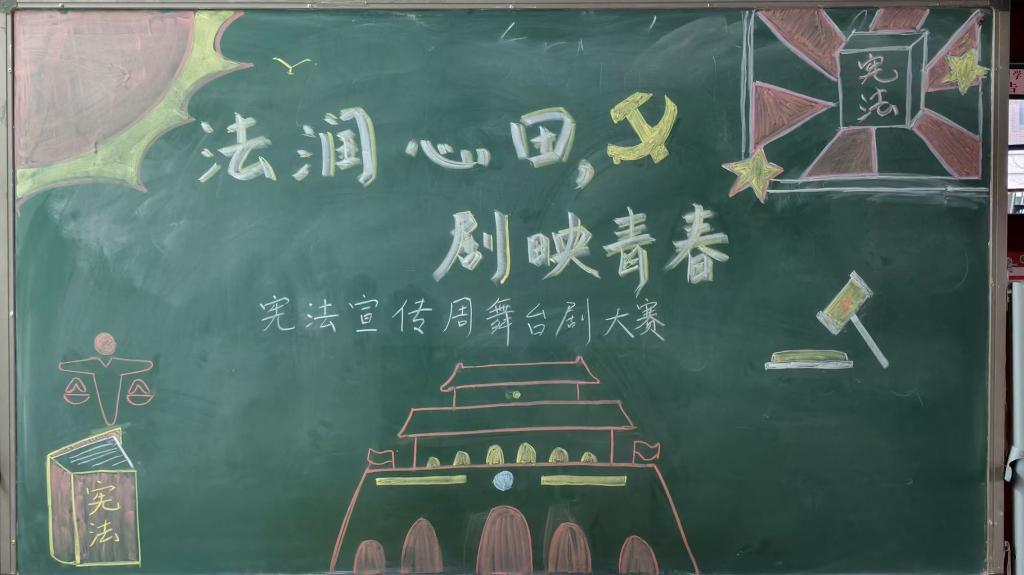 法润心田,
剧映青春
宪法宣传周舞台剧大赛
宪法
宪法